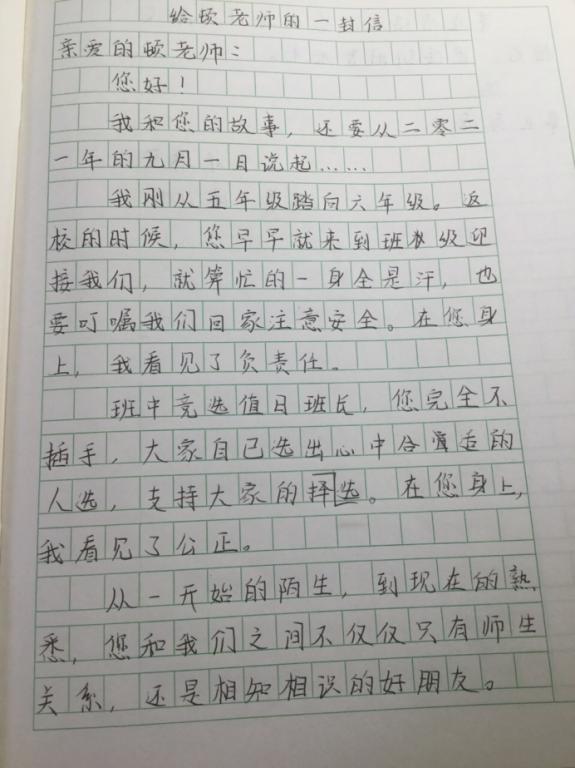 给顿老师的一封信
亲爱的顿老师：
您好！
我和您的故事，还要从二零二
一年的九月一日说起……
我刚从五年级踏向六年级。返
校的时候，您早早就来到班级迎
接我们，就算忙的一身全是汗，也
要叮嘱我们回家注意安全。在您身
上，我看见了负责任。
班中竞选值日班长，您完全不
插手，大家自已选出心中合适的
人选，支持大家的择选。在您身上，
我看见了公正。
从一开始的陌生，到现在的熟
悉，您和我们之间不仅仅只有师生
关系，还是相知相识的好朋友。